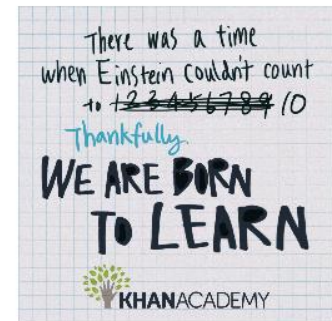 There was a time
when Einstein couldn't count
to 1 2 3 4 5 6 7 8 9 10
Thankfully.
WE ARE BORN
TO LEARN
KHANACADEMY